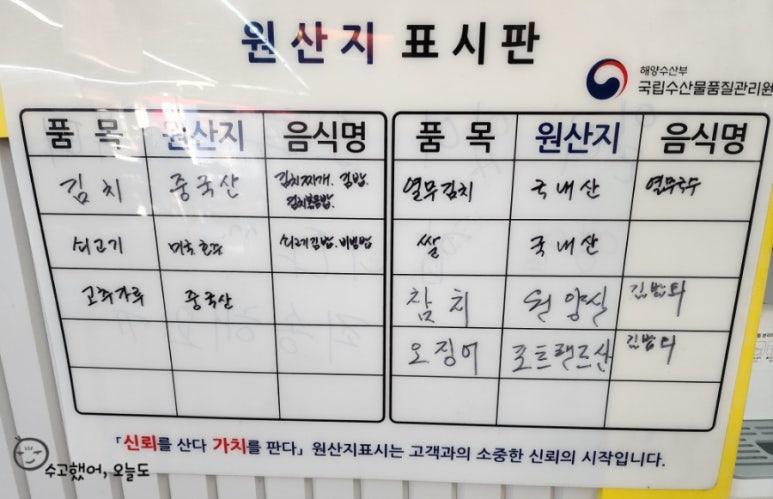 원산지 표시판
해양수산부
국립수산물품질관리원
품 목 원산지 음식명
김치 중국산 김치찌개. 김밥.
김치볶음밥.
쇠고기 쇠고기김밥. 비빔밥
고추가루 중국산
품 목 원산지 음식명
열무김치 국내산 열무국수
쌀 국내산
참치 원양산
오징어
「신뢰를 산다 가치를 판다」 원산지표시는 고객과의 소중한 신뢰의 시작입니다.
수고했어, 오늘도